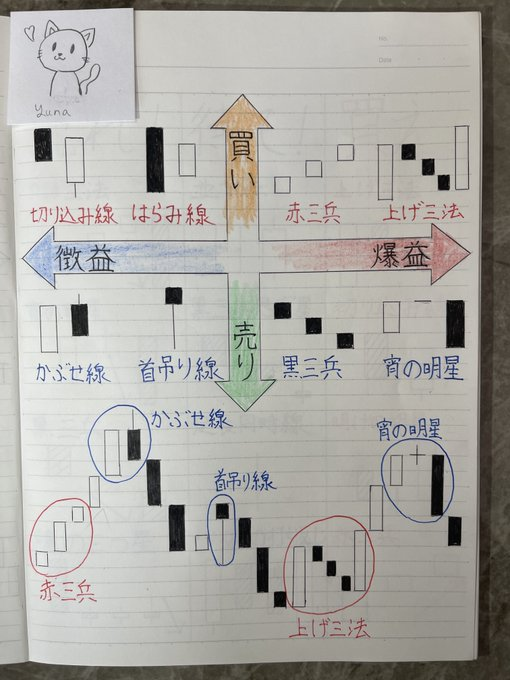 Yuna
No.
Date
買い
切り込み線 はらみ線 赤三兵 上げ三法
微益 爆益
売り
かぶせ線 首吊り線 黒三兵 宵の明星
かぶせ線
宵の明星
首吊り線
赤三兵
上げ三法